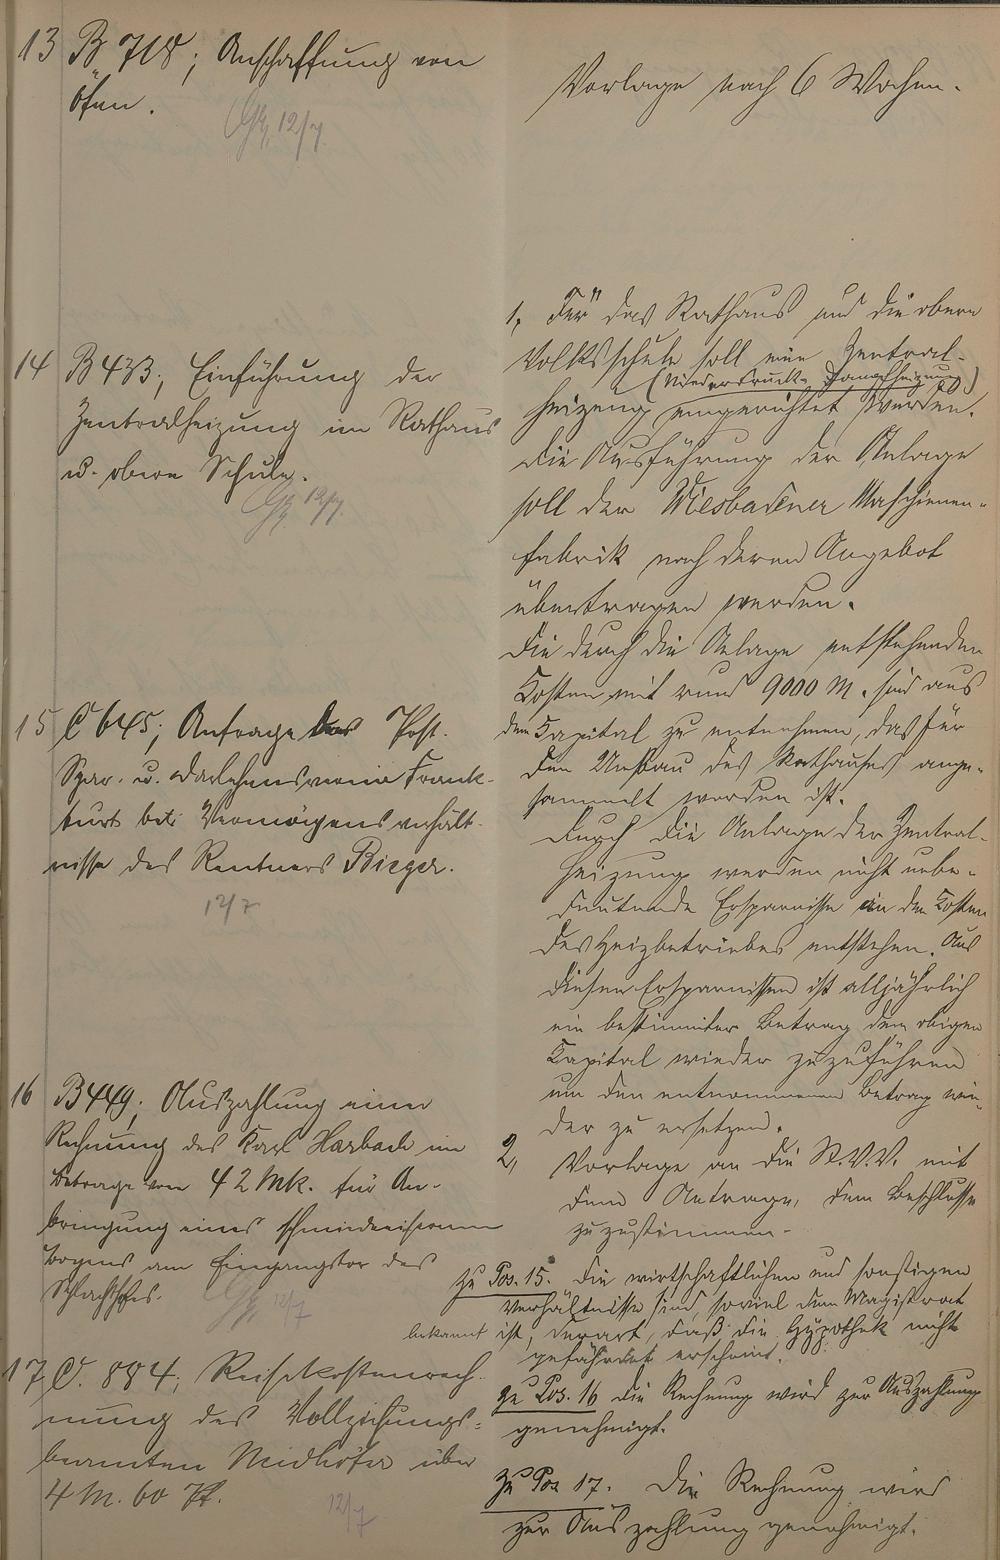 13 B 718; Anschaffung von
Öfen.
12/7.
Vorlage nach 6 Wochen.
14 B 433; Einführung der
Zentralheizung im Rathaus
u. obere Schule.
12/7.
1, Für das Rathaus und die obere
Volksschule soll eine Zentral-
(Niederdruck-Dampfheizung)
heizung eingerichtet werden.
Die Ausführung der Anlage
soll der Wiesbadener Maschienen-
fabrik nach deren Angebot
übertragen werden.
Die durch die Anlage entstehenden
Kosten mit rund 9000 M. sind aus
dem Kapital zu entnehmen, das für
den Umbau des Rathauses ange-
sammelt worden ist.
Durch die Anlage der Zentral-
heizung werden nicht unbe-
deutende Ersparnisse an den Kosten
des Heizbetriebes entstehen. Aus
diesen Ersparnissen ist alljährlich
ein bestimmter Betrag dem obigen
Kapital wieder zuzuführen
um den entnommenen Betrag wie-
der zu ersetzen.
2, Vorlage an die St.V.V. mit
dem Antrage, dem Beschlusse
zuzustimmen.
15 C 645; Anfrage des Post-
Spar- u. Darlehensverein Frank-
furt betr. Vermögensverhält-
nisse des Rentners Bieger.
12/7
16 B 449; Auszahlung einer
Rechnung des Karl Harbach im
Betrage von 42 Mk. für An-
bringung eines schmiedeeisernen
Bogens am Eingangstor des
Schlachthofes.
12/7
17 C. 884; Reisekostenrech-
nung des Vollziehungs-
beamten Niedhöfer über
4 M. 60 Pf.
12/7
zu Pos. 15. Die wirtschaftlichen und sonstigen
Verhältnisse sind, soviel dem Magistrat
bekannt ist, derart, daß die Hypothek nicht
gefährdet erscheint.
zu Pos. 16 Die Rechnung wird zur Auszahlung
genehmigt.
zu Pos 17. Die Rechnung wird
zur Auszahlung genehmigt.